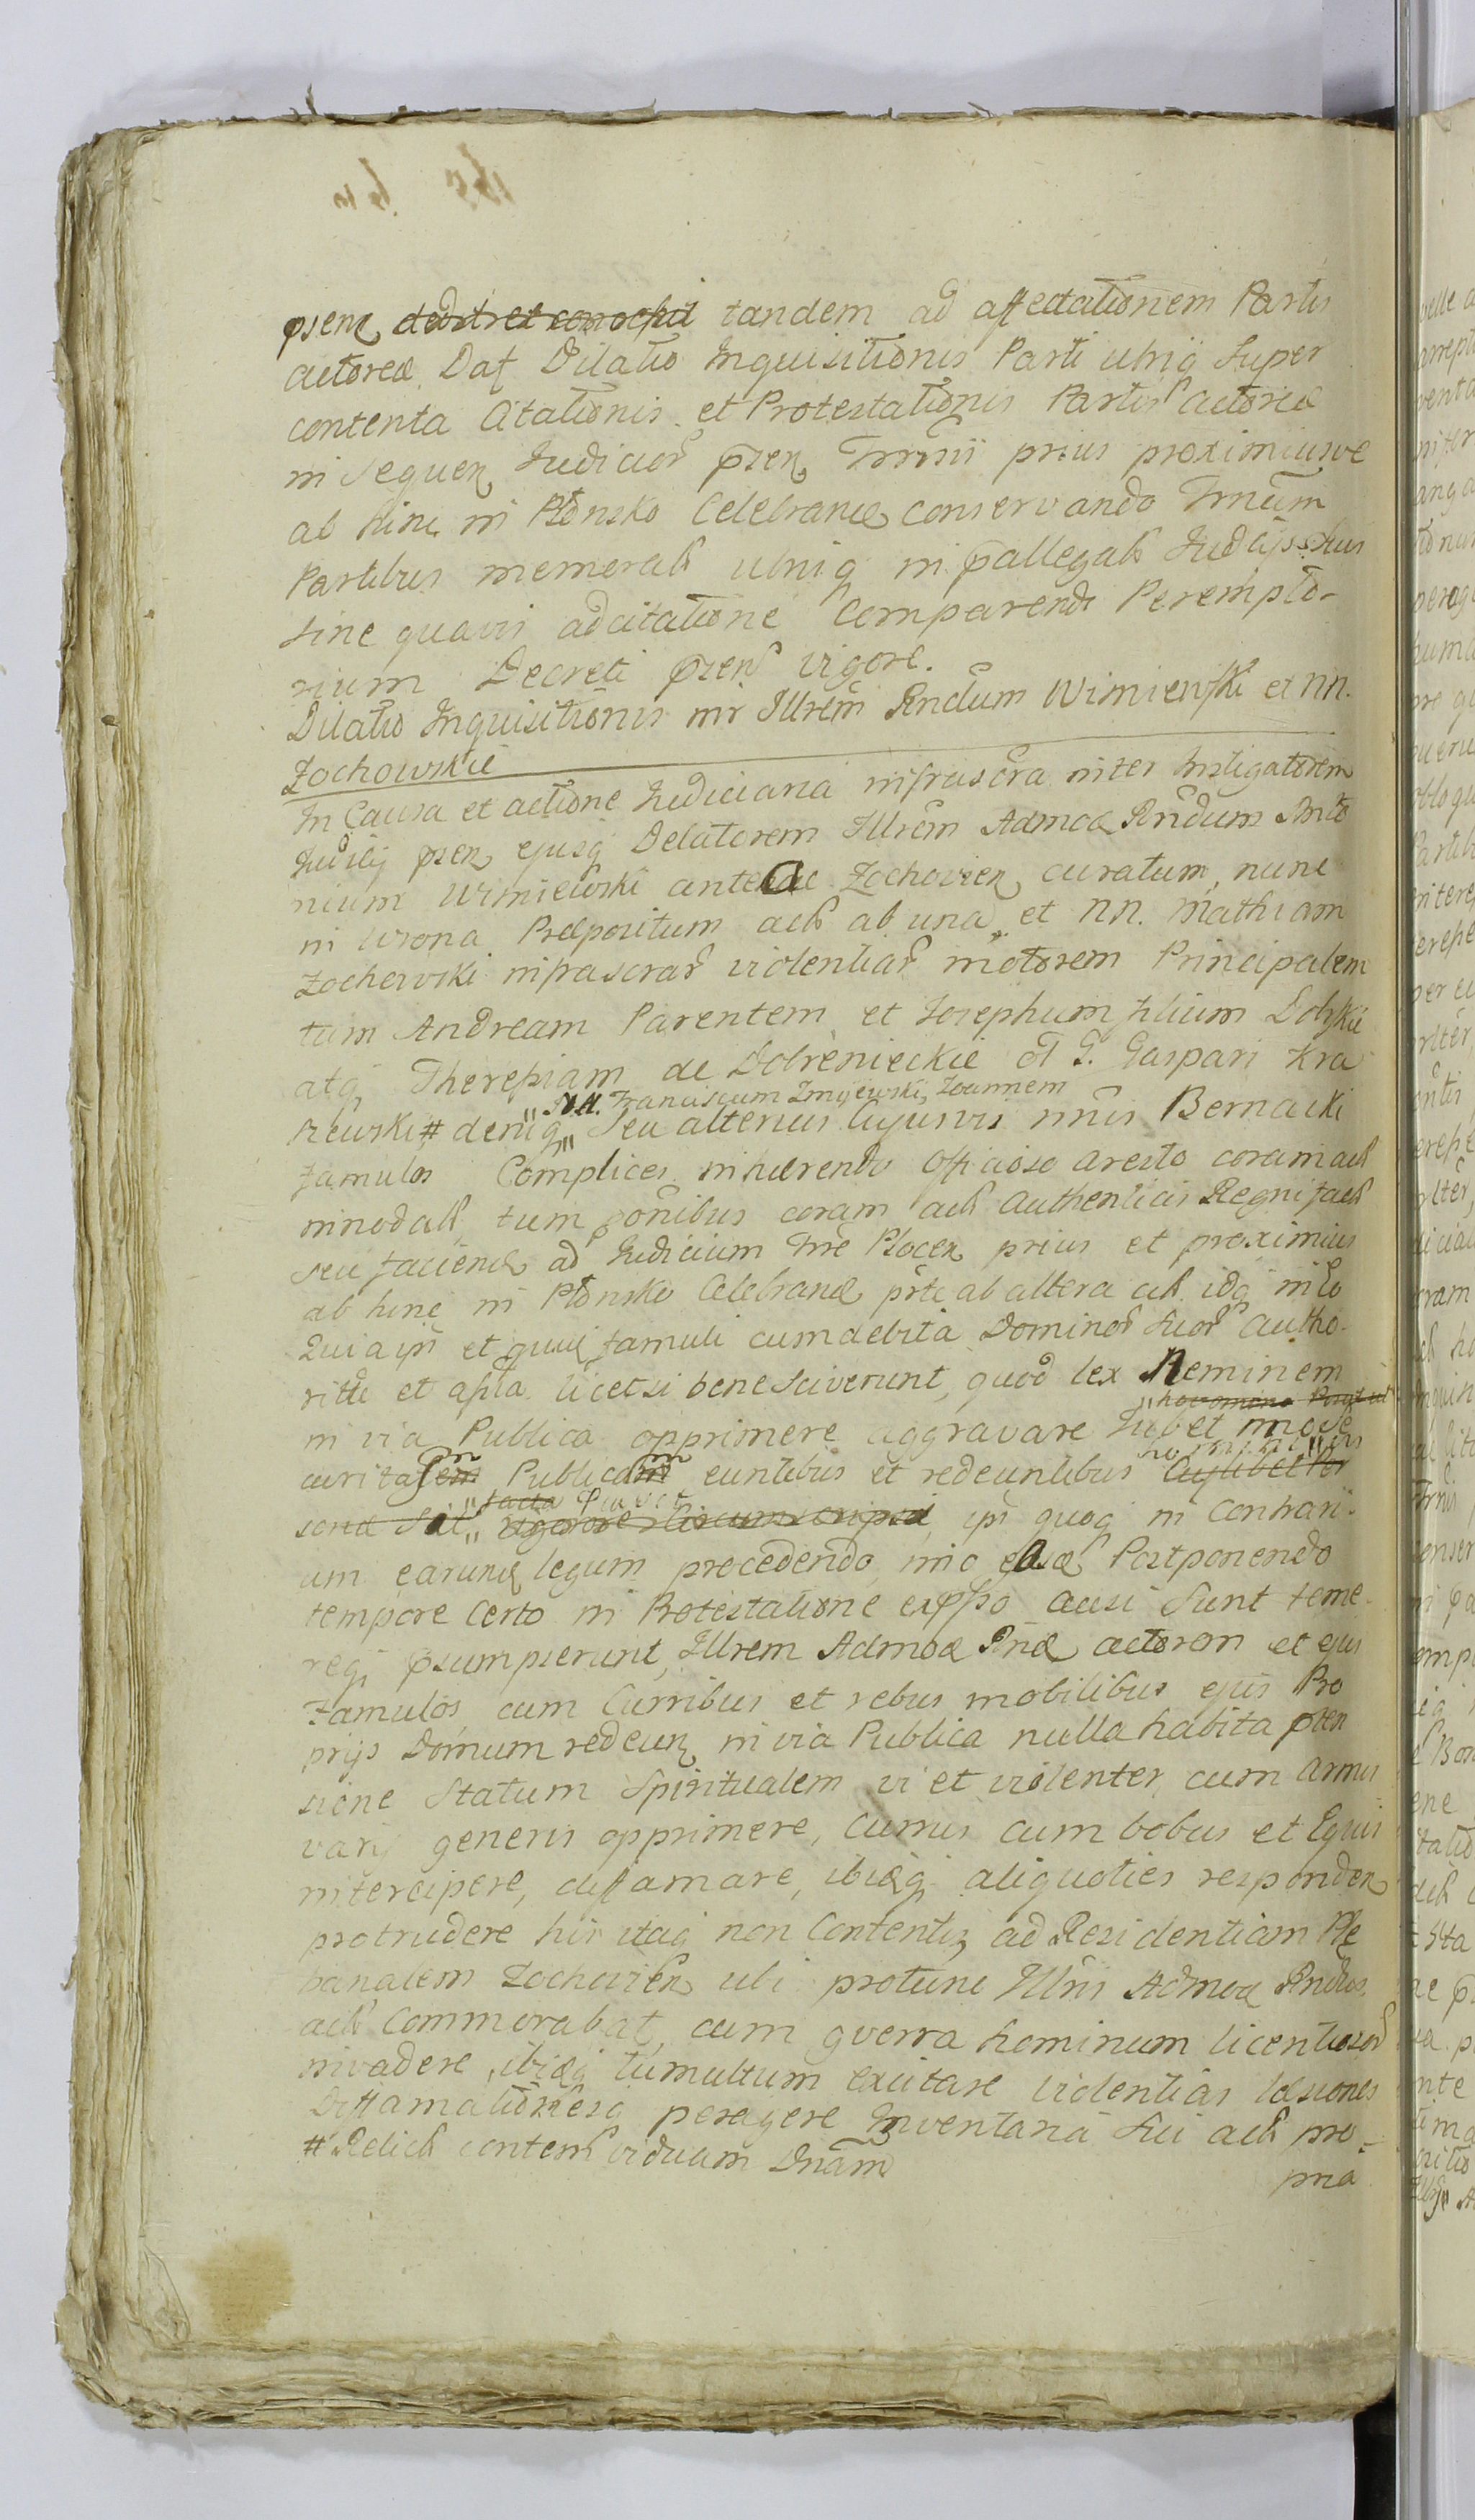 psenᷓ dedit et concessit tandem ad affectationem Partis
actoreæ Dat Dilatio Inquisitionis Parti utriq Super
contenta Citationis et Protestationis Partis actoreæ
in Sequen Judicior psen Trmii prius proximiusve
ab hinc in Płonsko Celebrand conservando Trnum
Partibus memorats utriq in pallegats Judiijs
sine quavis adcitatione Comparendi Perempto-
rium Decreti psens vigore.
Dilatio Inquisitionis inr Illrem Rndum Wiśniewski et NN.
Żochowskie
In Causa et actione Judiciaria infrascra inter Instigatorem
Judiij psen ejusq Delatorem Illrem Admod Rndum Anto
nium Wiśniewski anteae Żochovien curatum, nunc
in Wrona Præpositum acts ab una, et NN. Mathiam
Żochowski infrascrar violentiar motorem Principalem
tum Andream Parentem et Josephum filium Dolskie
atq Theresiam de Dobrenieckie ol G. Gaspari Kra
" NN. Franciscum Zmijewski, Joannem
szewski # deniq " seu alterius cujusvis nnis Bernacki
famulos Complices inhærendo Officioso aresto coram acts
innodats, tum onibus coram acts Authenticis Regni facts
seu faciend ad Judicium Trre Plocen prius et proximius
ab hinc in Płonsko Celebrand pte ab altera acts idq in Eo
Quia ipi et famuli cum debita Dominor Suor autho-
ritte et licet si bene sciverunt, quod lex Neminem
in via Publica opprimere aggravare jubet
curitatem Publicam euntibus et redeuntibus cujslibet Per
sonæ sit " vigorose circumscripsit, ipi quoq in Contrarii-
um earund legum procedendo, imo eas Postponendo
tempore Certo in Protestatione exppso ausi Sunt teme
req psumpserunt, Illrem Admod Rnd actorem et ejus
Famulos cum Curribus et rebus mobilibus ejus Pro
prijs Domum redeun in via Publica nulla habita pten
sione Statum Spiritualem vi et violenter, cum armis
varij generis opprimere, Currus cum bobus et Equis
intercipere, diffamare, ibidq aliquoties responden
protrudere his itaq non Contentis, ad Residentiam Ple
banalem Żochovien ubi protunc Illris Admod Rndus
acts Commorabat, cum gverra hominum licentiosor
invadere, ibidq tumultum excitare violentias læsiones
Diffamationesq peragere Inventaria Sui acts pro-
# Relicts contem viduam Dnam
pria